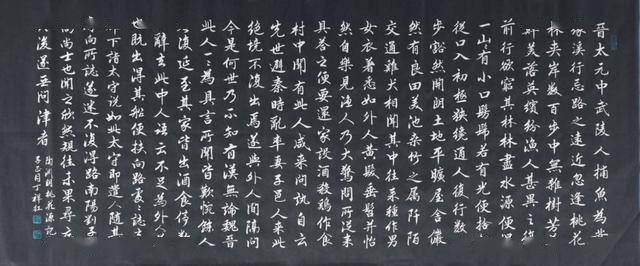 晉太元中武陵人捕魚為業
緣溪行忘路之遠近忽逢桃花
林夾岸數百步中無雜樹芳
鮮美落英繽紛漁人甚異之復
前行欲窮其林林盡水源便得
一山々有小口髣髴若有光便捨
從口入初極狹纔通人復行數
步豁然開朗土地平曠屋舍儼
然有良田美池桑竹之屬阡陌
交通雞犬相聞其中往來種作男
女衣著悉如外人黃髮垂髫并怡
然自樂見漁人乃大驚問所從來
具答之便要還家設酒殺雞作食
村中聞有此人咸來問訊自云
先世避秦時亂率妻子邑人來此
絕境不復出焉遂與外人間隔問
今是何世乃不知有漢無論魏晉
此人一々為具言所聞皆歎惋餘人
復延至其家皆出酒食停數
辭去此中人語云不足為外人
也既出得其船便扶向路處々誌
下詣太守說如此太守即遣人隨其
尋向所誌遂迷不復得路南陽劉子
高尚士也聞之欣然規往未果尋
後遂無問津者
陶淵明桃花源記